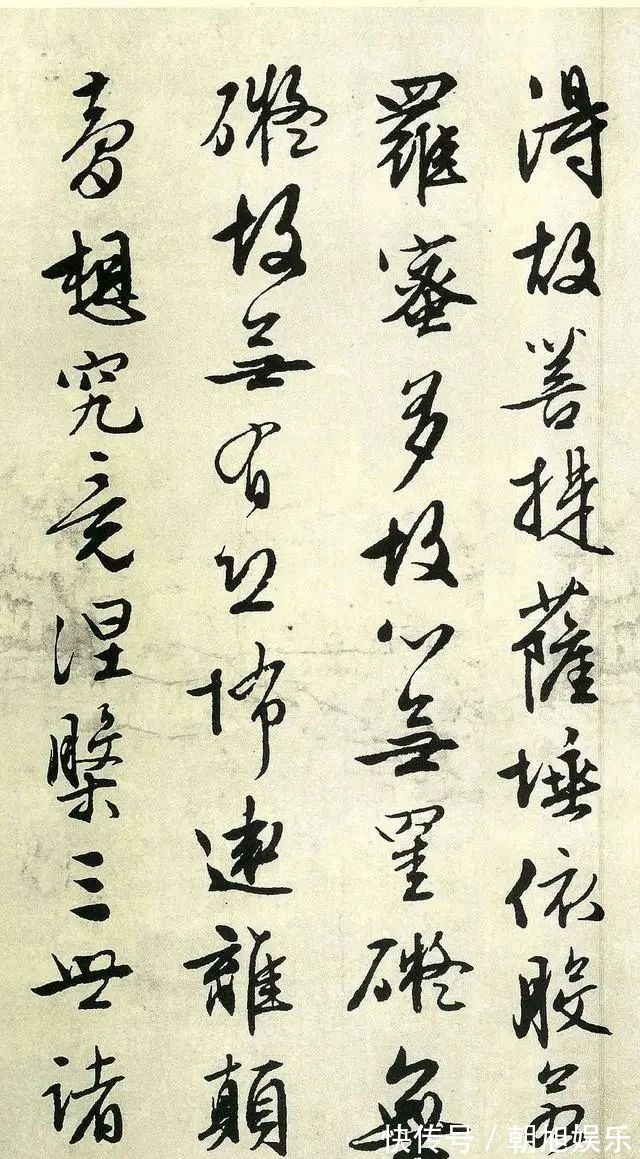 得故菩提薩埵依般若
羅蜜多故心無罣礙無
礙故無有恐怖遠離顛
夢想究竟涅槃三世諸
快传号 / 朝旭娱乐